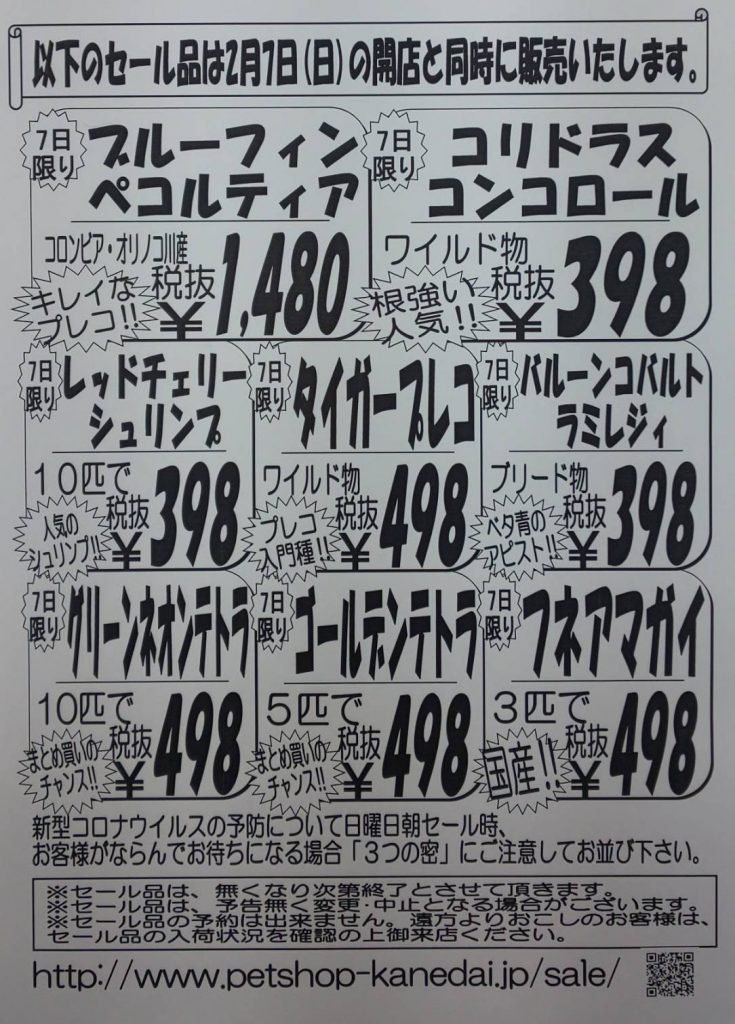 以下のセール品は2月7日(日)の開店と同時に販売いたします。
7日
限り
ブルーフィン
ペコルティア
コロンビア・オリノコ川産
キレイな
プレコ!!
税抜
¥1,480
7日
限り
コリドラス
コンコロール
ワイルド物
根強い
人気!!
税抜
¥398
7日
限り
レッドチェリー
シュリンプ
10匹で
人気の
シュリンプ!!
税抜
¥398
7日
限り
タイガープレコ
ワイルド物
プレコ
入門種!!
税抜
¥498
7日
限り
バルーンコバルト
ラミレジィ
ブリード物
ベタ青の
アピスト!!
税抜
¥398
7日
限り
グリーンネオンテトラ
10匹で
まとめ買いの
チャンス!!
税抜
¥498
7日
限り
ゴールデンテトラ
5匹で
まとめ買いの
チャンス!!
税抜
¥498
7日
限り
フネアマガイ
3匹で
国産!!
税抜
¥498
新型コロナウイルスの予防について日曜日朝セール時、
お客様がならんでお待ちになる場合「3つの密」にご注意してお並び下さい。
※セール品は、無くなり次第終了とさせて頂きます。
※セール品は、予告無く変更・中止となる場合がございます。
※セール品の予約は出来ません。遠方よりおこしのお客様は、
セール品の入荷状況を確認の上御来店ください。
http://www.petshop-kanedai.jp/sale/